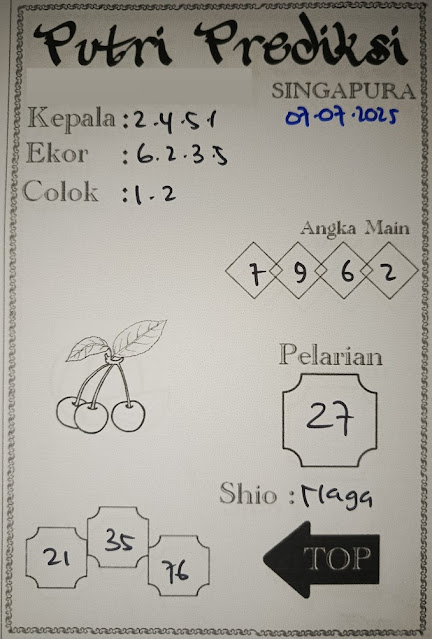 Putri Prediksi
SINGAPURA
07-07-2025
Kepala : 2.4.5.1
Ekor : 6.2.3.5
Colok : 1.2
Angka Main
7 9 6 2
Pelarian
27
Shio : Naga
21 35 76
TOP